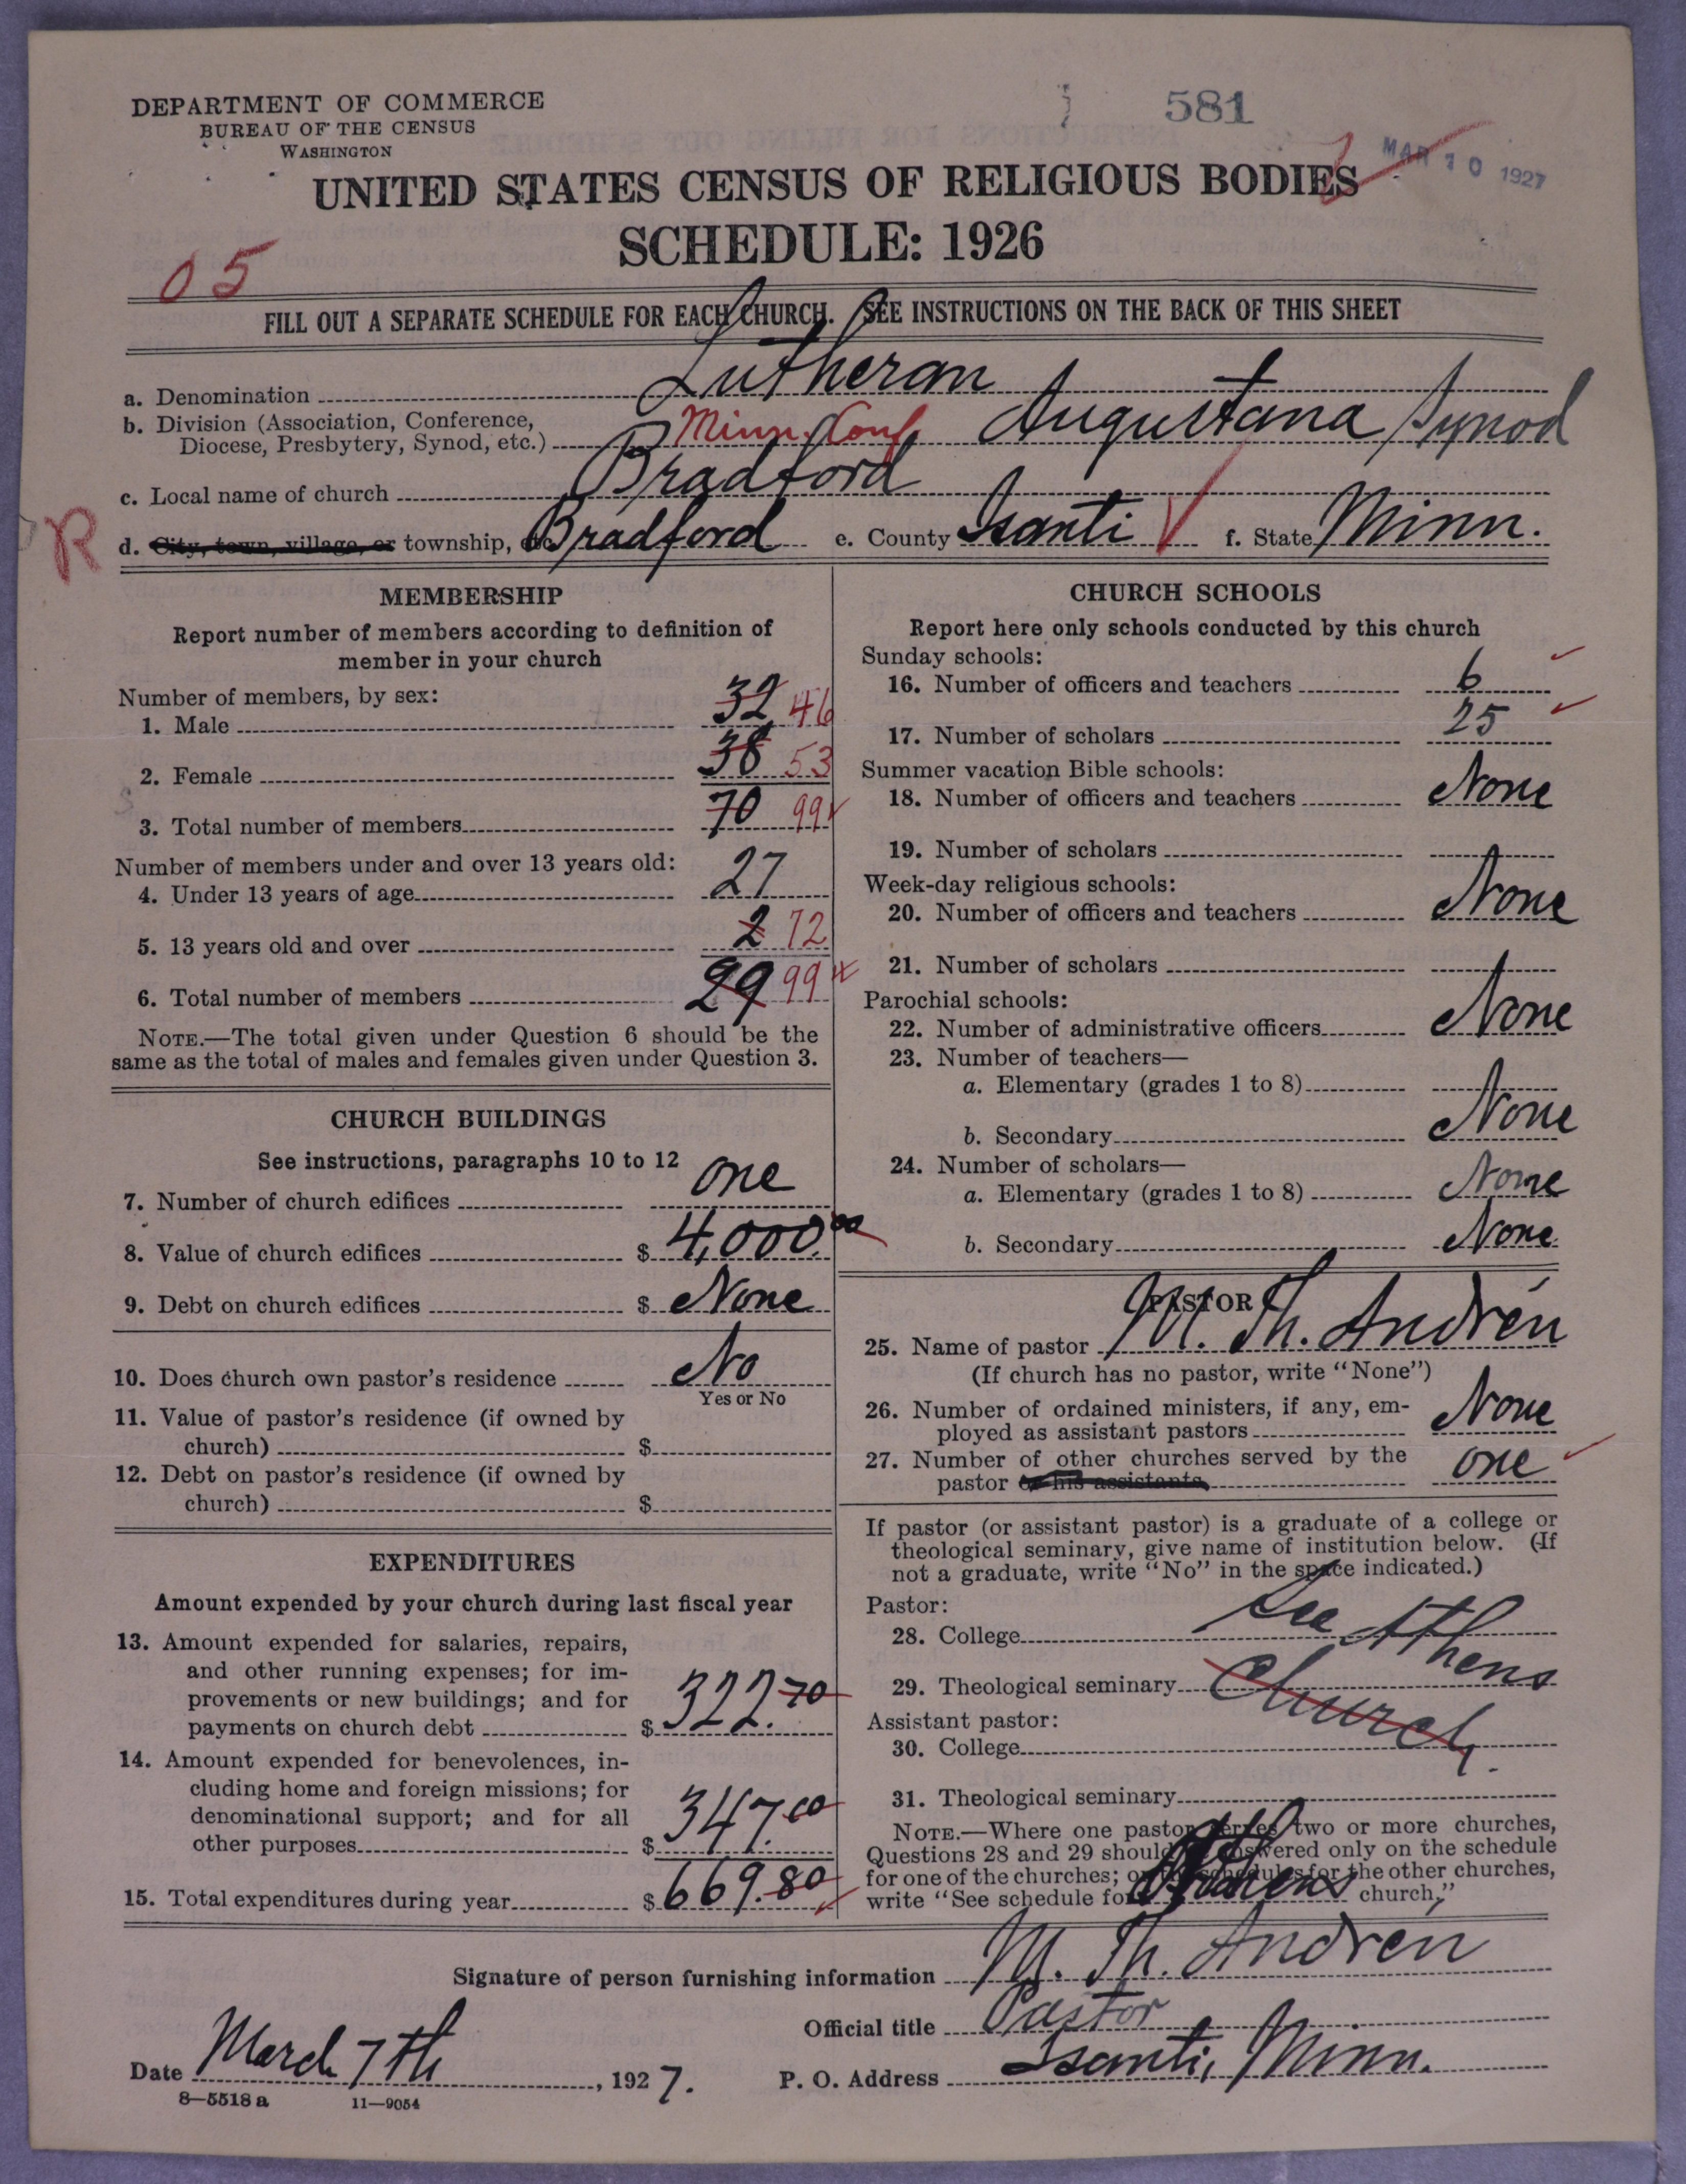 DEPARTMENT OF COMMERCE
BUREAU OF THE CENSUS
WASHINGTON
581
MAR 10 1927
UNITED STATES CENSUS OF RELIGIOUS BODIES
SCHEDULE: 1926
05
FILL OUT A SEPARATE SCHEDULE FOR EACH CHURCH. SEE INSTRUCTIONS ON THE BACK OF THIS SHEET
a. Denomination Lutheran
b. Division (Association, Conference,
Diocese, Presbytery, Synod, etc.) Minn. Conf. Augustana Synod
c. Local name of church Bradford
R
d. City, town, village, or township, etc. Bradford e. County Isanti f. State Minn.
MEMBERSHIP
Report number of members according to definition of
member in your church
Number of members, by sex:
1. Male 32 46
2. Female 38 53
3. Total number of members 70 99
Number of members under and over 13 years old:
4. Under 13 years of age 27
5. 13 years old and over 2 72
6. Total number of members 29 99
NOTE.—The total given under Question 6 should be the
same as the total of males and females given under Question 3.
CHURCH BUILDINGS
See instructions, paragraphs 10 to 12
7. Number of church edifices one
8. Value of church edifices $ 4,000.00
9. Debt on church edifices $ None
10. Does church own pastor's residence No
Yes or No
11. Value of pastor's residence (if owned by
church) $
12. Debt on pastor's residence (if owned by
church) $
EXPENDITURES
Amount expended by your church during last fiscal year
13. Amount expended for salaries, repairs,
and other running expenses; for im-
provements or new buildings; and for
payments on church debt $ 322.70
14. Amount expended for benevolences, in-
cluding home and foreign missions; for
denominational support; and for all
other purposes $ 347.00
15. Total expenditures during year $ 669.80
CHURCH SCHOOLS
Report here only schools conducted by this church
Sunday schools:
16. Number of officers and teachers 6
17. Number of scholars 25
Summer vacation Bible schools:
18. Number of officers and teachers None
19. Number of scholars
Week-day religious schools:
20. Number of officers and teachers None
21. Number of scholars
Parochial schools:
22. Number of administrative officers None
23. Number of teachers—
a. Elementary (grades 1 to 8)
b. Secondary None
24. Number of scholars—
a. Elementary (grades 1 to 8) None
b. Secondary None.
PASTOR
25. Name of pastor M. Th. Andrén
(If church has no pastor, write "None")
26. Number of ordained ministers, if any, em-
ployed as assistant pastors None
27. Number of other churches served by the
pastor or his assistants one
If pastor (or assistant pastor) is a graduate of a college or
theological seminary, give name of institution below. (If
not a graduate, write "No" in the space indicated.)
Pastor:
28. College See Athens
29. Theological seminary Church.
Assistant pastor:
30. College
31. Theological seminary
NOTE.—Where one pastor serves two or more churches,
Questions 28 and 29 should be answered only on the schedule
for one of the churches; on the schedules for the other churches,
write "See schedule for Athens church."
Signature of person furnishing information M. Th. Andrén
Official title Pastor
Date March 7th, 1927. P. O. Address Isanti, Minn.
8—5518 a 11—9054